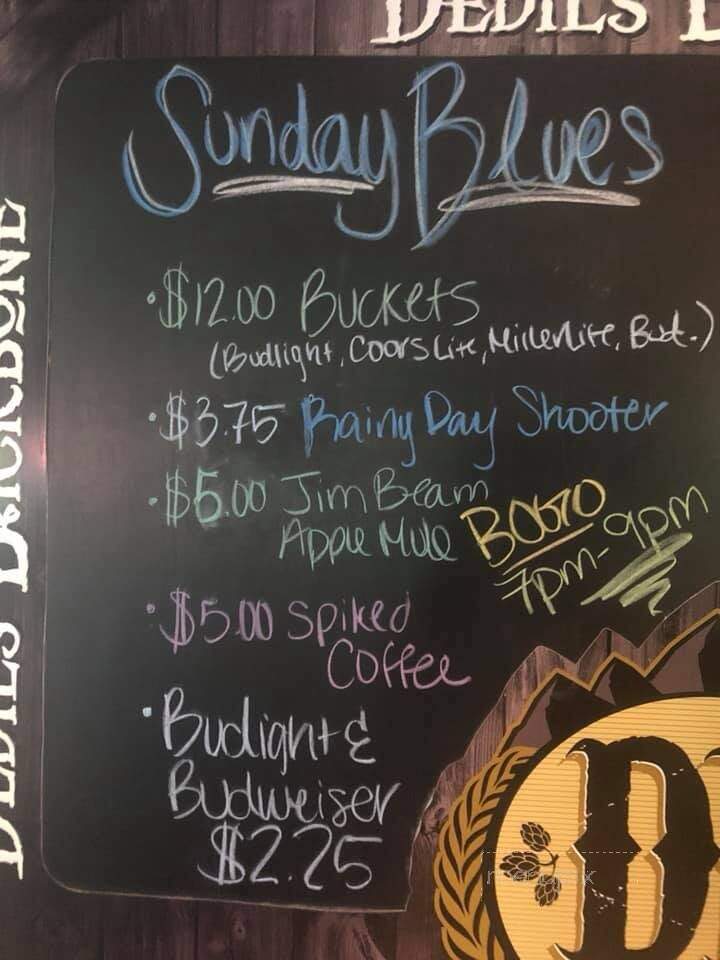 DEVILS
Sunday Blues
DEVILS BACKBONE
•$12.00 Buckets
(Budlight, Coors Lite, Miller Lite, Bud.)
•$3.75 Rainy Day Shooter
•$5.00 Jim Beam
Apple Mule
BOGO
7pm-9pm
•$5.00 Spiked
Coffee
•Budlight &
Budweiser
$2.25
D